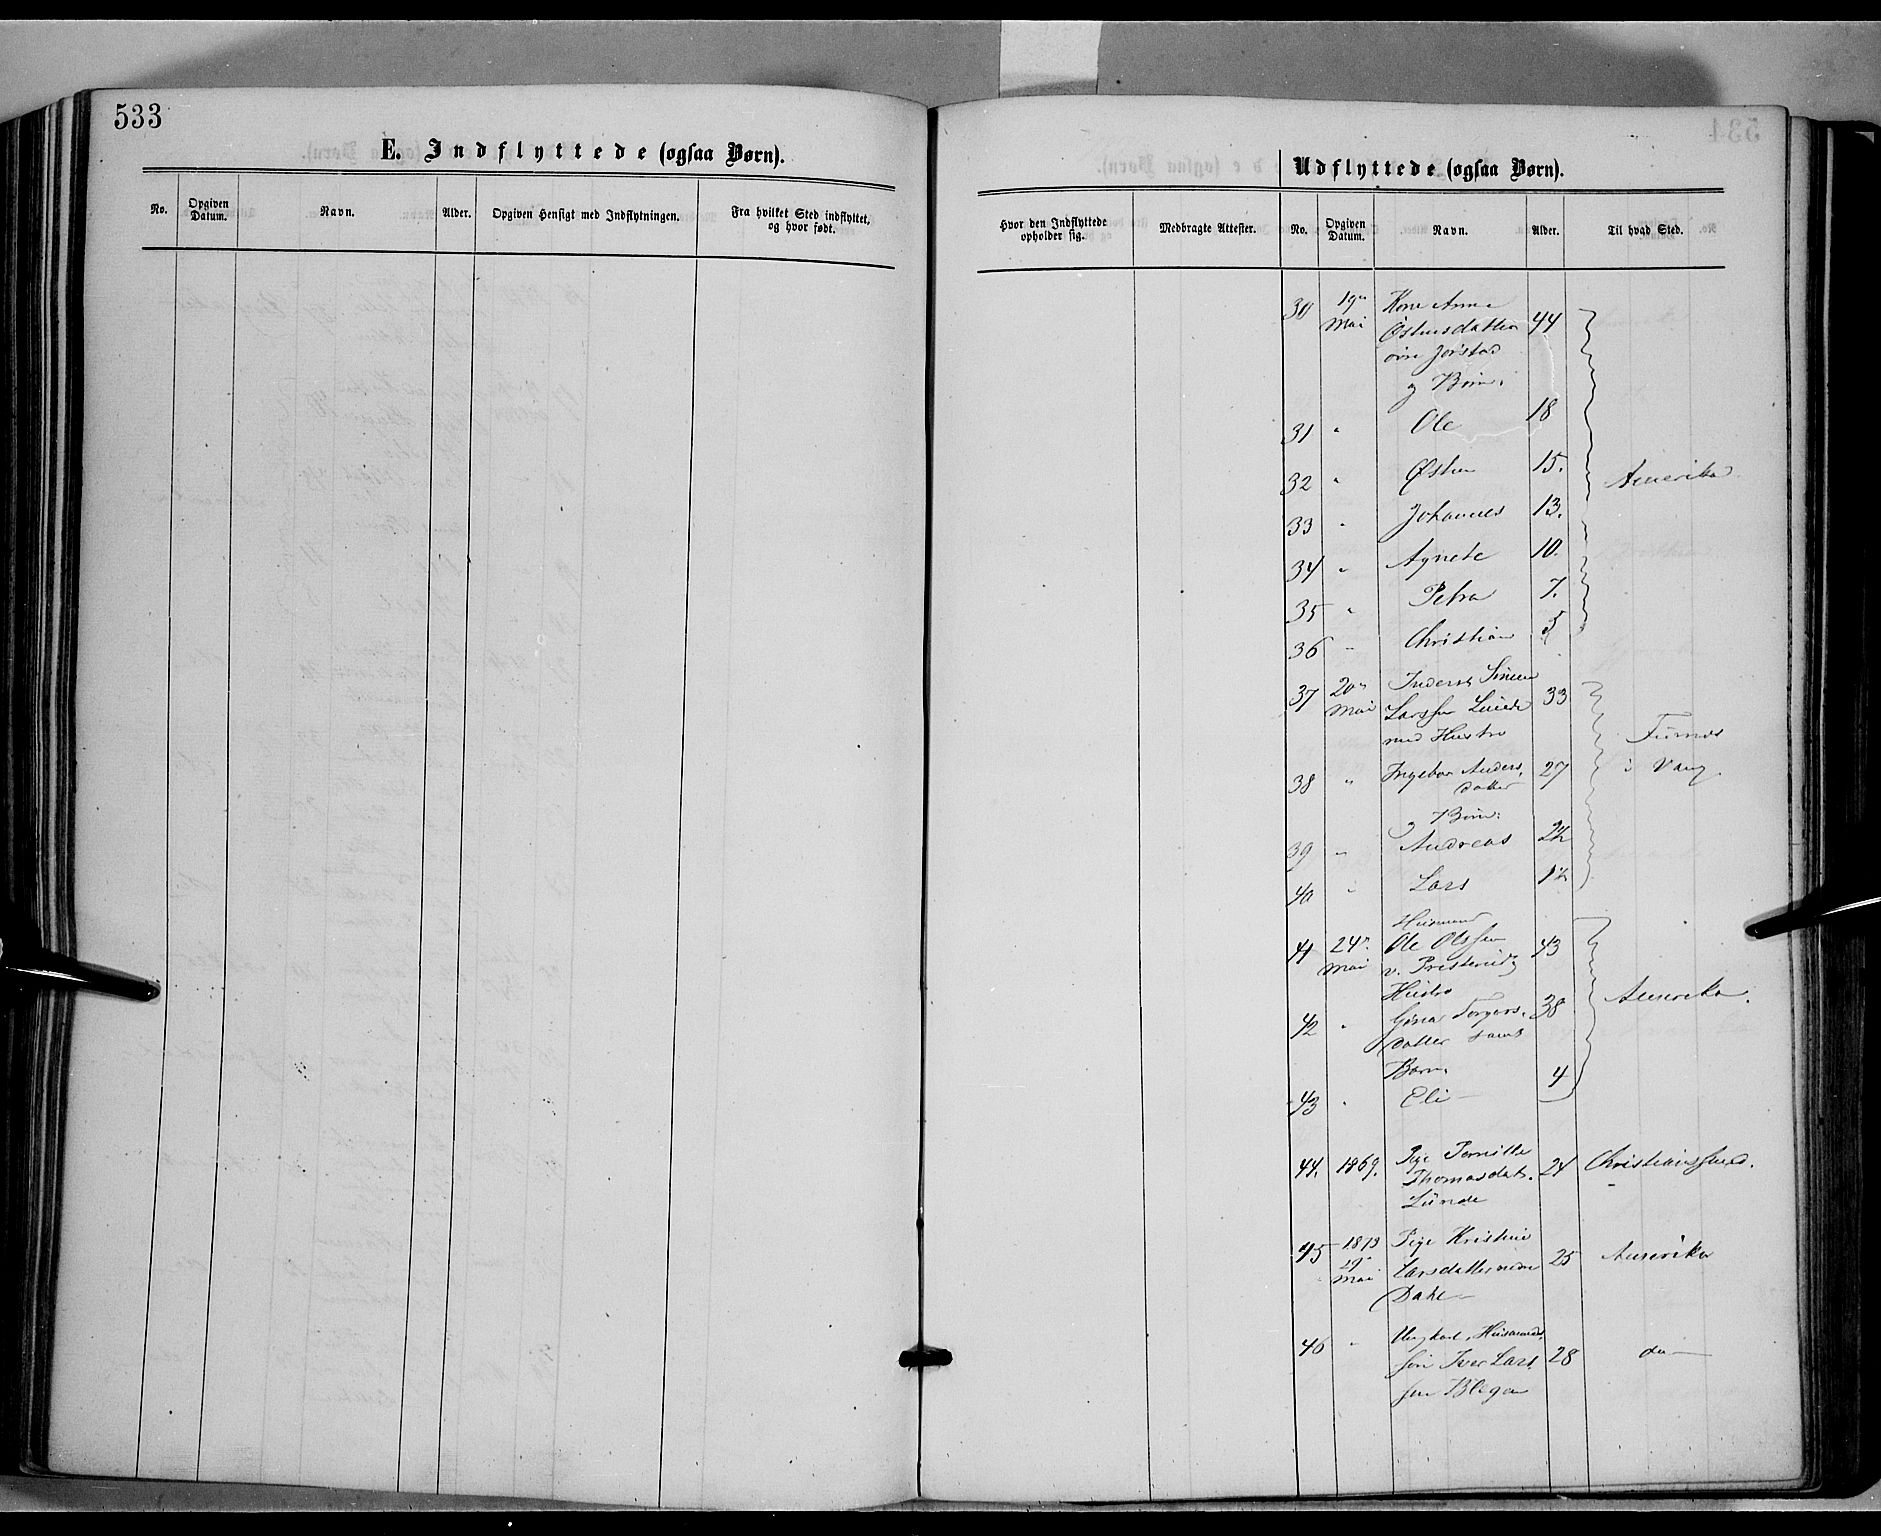 533
E. Indflyttede (ogsaa Børn).
No.
Opgiven Datum.
Navn.
Alder.
Opgiven Hensigt med Indflytningen.
Fra hvilket Sted indflyttet, og hvor født.
Udflyttede (ogsaa Børn).
Hvor den Indflyttede opholder sig.
Medbragte Attester.
No.
Opgiven Datum.
Navn.
Alder.
Til hvad Sted.
30 19 Mai Kone Anne 44
Østensdatter
øvre Jørstad
og Børn:
31 " Ole 18
32 " Østen 15. Amerika
33 " Johannes 13.
34 " Agnete 10.
35 " Petra 7.
36 " Christian 5
37 20 Mai Inderst Simen 33
Larssen Lunde
med Hustro Furnes
38 " Ingebor Anders 27 i Vang.
datter
og Børn:
39 " Andreas 2½
40 " Lars 1½
Husmand
41 24 Mai Ole Olssen 43
v.
Hustro Amerika.
42 " Torgers 38
datter samt
Barn
43 " Eli 4
44. 1869. Pige Pernille 24 Christianssund.
Thomasdat.
Lunde
45 1873 Pige Kristine 25 Amerika
29 Mai Larsdatter nedre
Dahl
46 " Ungkarl, Husmands
søn Iver Lars 28 do
sen